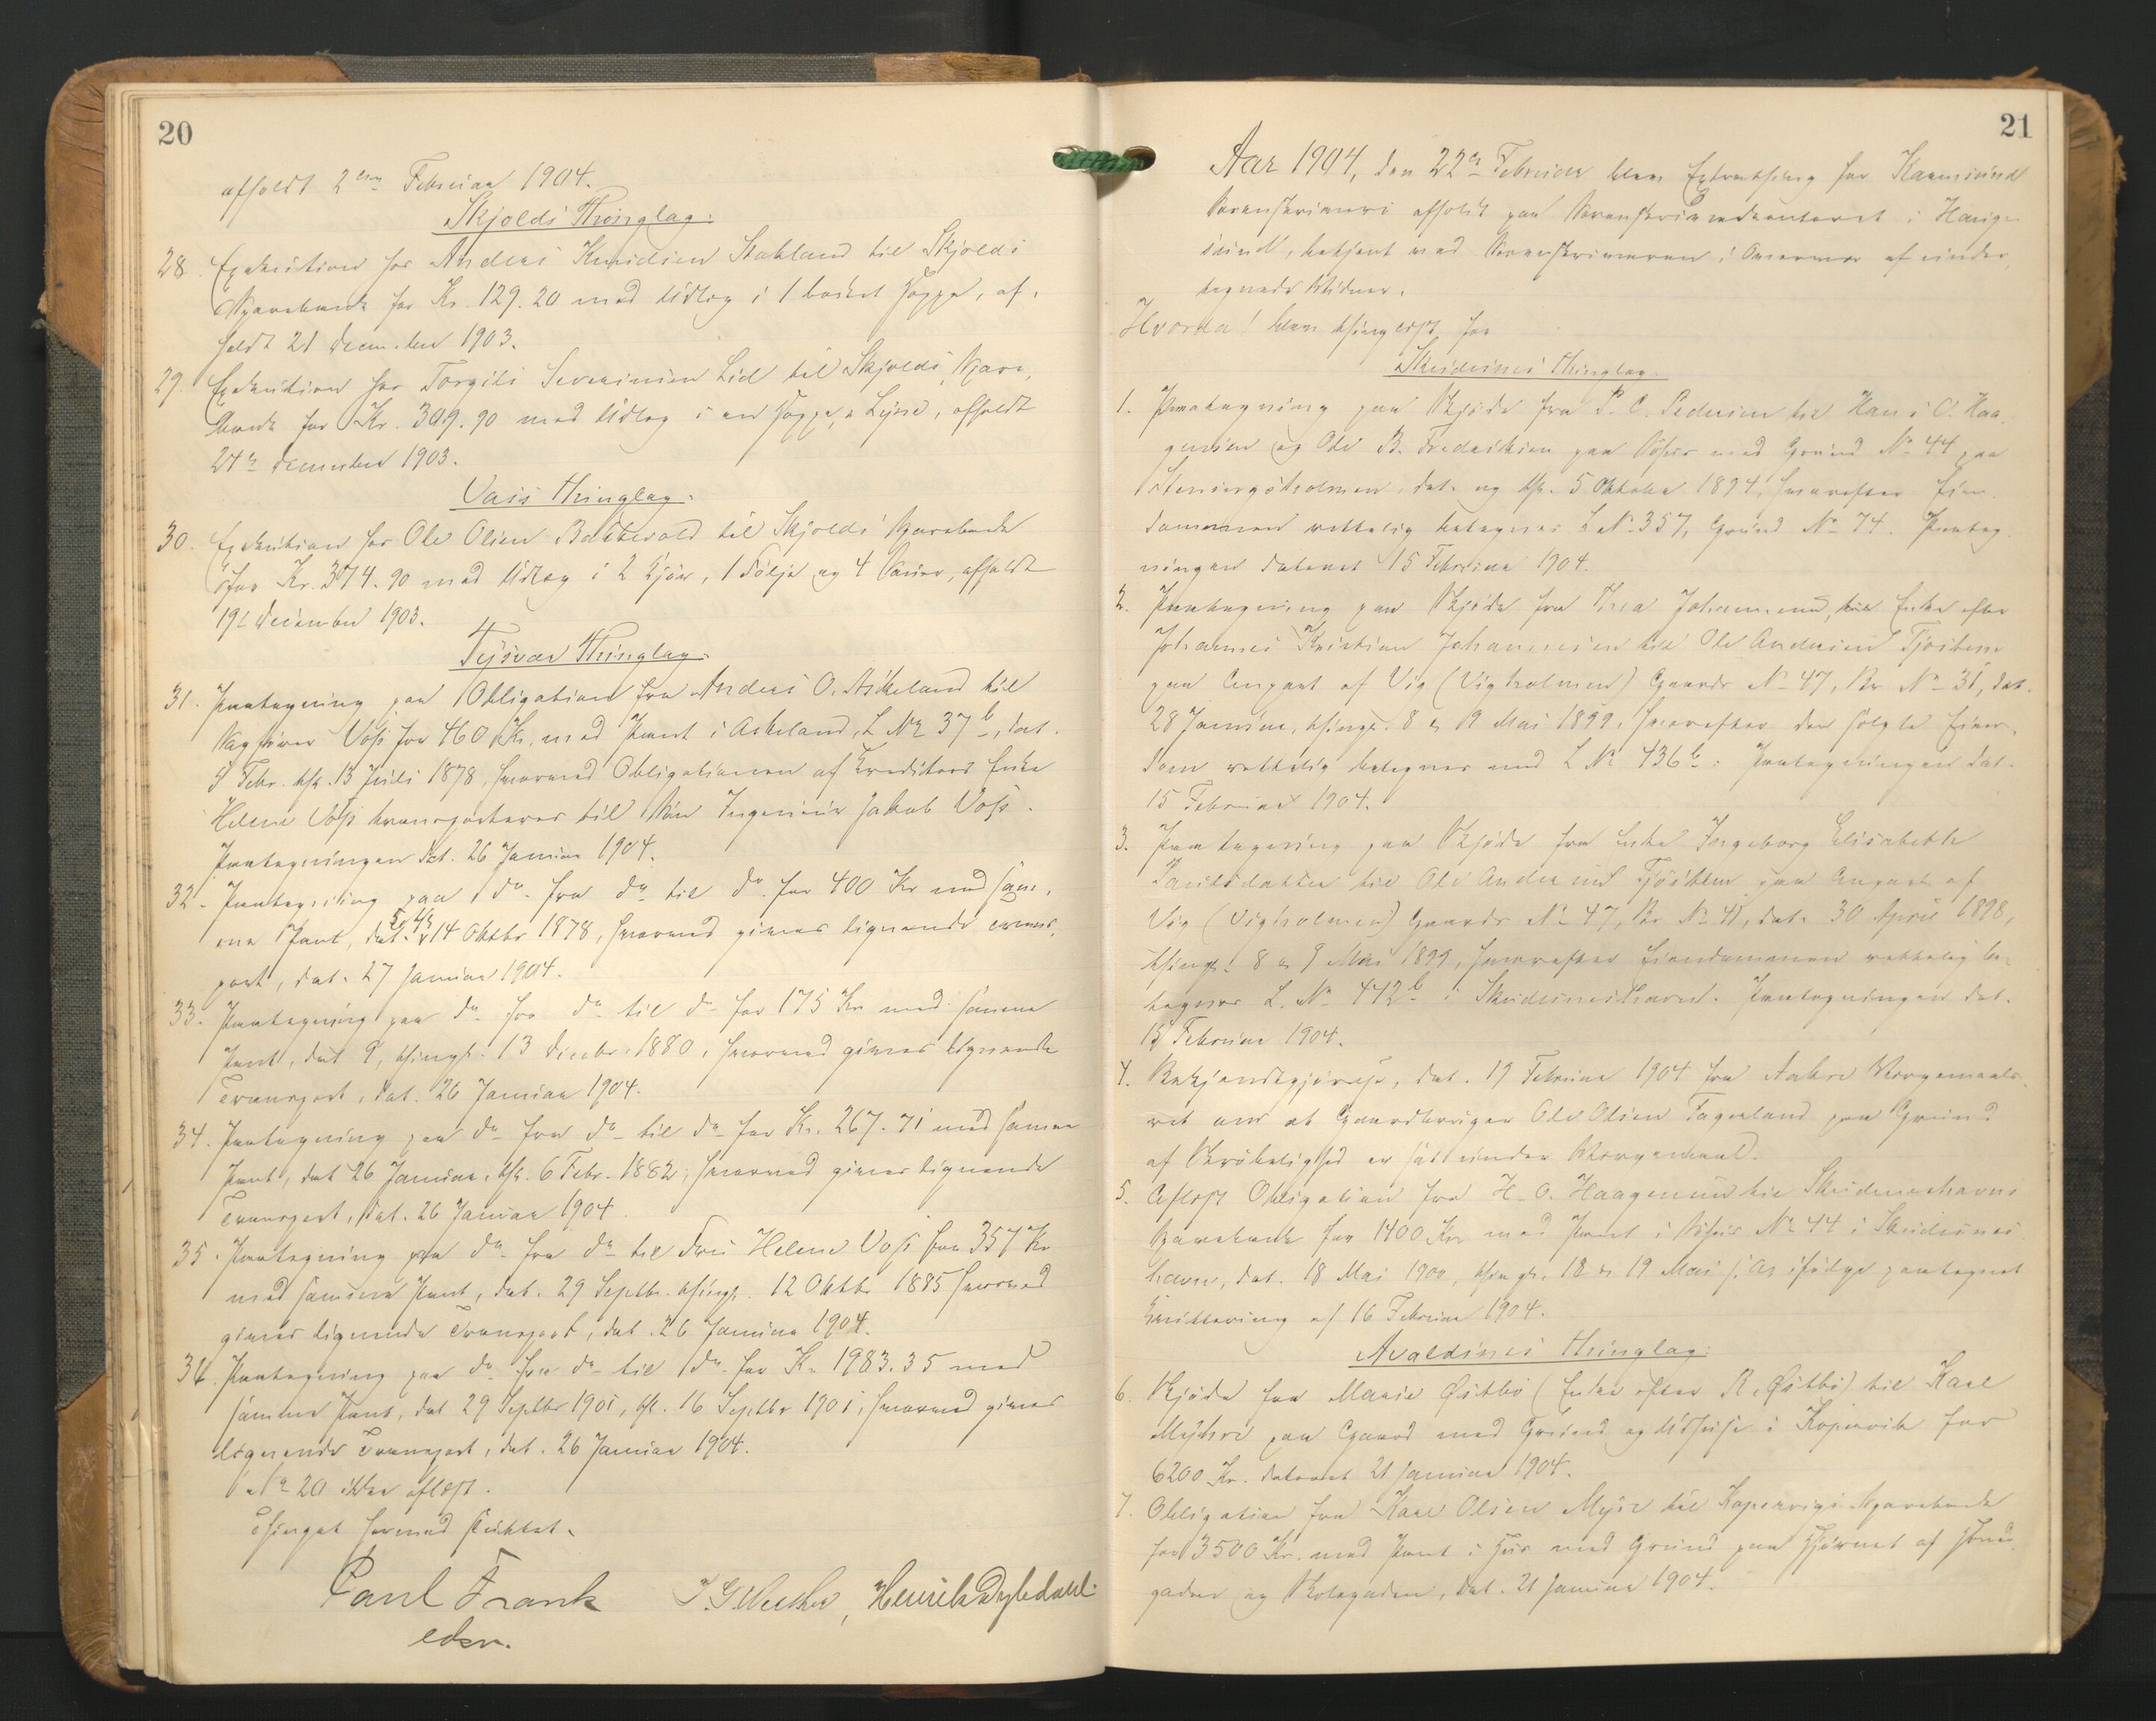 20
afholdt 2den Februar 1904.
Skjolds Thinglag:
28. Exekution hos Anders Knudsen Stakland til Skjolds
Sparebank for Kr. 129.20 med Udlæg i 1 borket Hoppe, af-
holdt 21 december 1903.
29. Exekution hos Torgils Severinsen Lid til Skjolds Spare-
bank for Kr. 309.90 med Udlæg i en Hoppe, afholdt
24de december 1903.
Vats Thinglag:
30. Exekution hos Ole Olsen til Skjolds Sparebank
for Kr. 374.90 med Udlæg i 2 Kjør, 1 Følje og 4 Sauer, afholdt
19de december 1903.
Tysvær Thinglag:
31. Paategning paa Obligation fra Anders O. Askeland til
Sagfører Voss for 460 Kr. med Pant i Askeland, L No 37b, dat.
5 Febr. thl. 13 Juli 1878, hvorved Obligationen af Kreditors Enke
Helene Voss transporteres til Søn Ingeniør Jakob Voss.
Paategningen dat. 26 Januar 1904.
32. Paategning paa do fra do til do for 400 Kr med sam-
me Pant, dat. 14 Oktbr 1878, hvorved gives lignende Trans-
port, dat. 27 Januar 1904.
33. Paategning paa do fra do til do for 175 Kr med samme
Pant, dat 9, thingl. 13 Decbr. 1880, hvorved gives lignende
Transport, dat. 26 Januar 1904.
34. Paategning paa do fra do til do for Kr. 267.71 med samme
Pant, dat 26 Januar, thl. 6 Febr. 1882, hvorved gives lignende
Transport, dat. 26 Januar 1904.
35. Paategning paa do fra do til Fru Helene Voss for 357 Kr
med samme Pant, dat. 29 Septbr. thingl. 12 Oktbr 1885 hvorved
gives lignende Transport, dat. 26 Januar 1904.
36. Paategning paa do fra do til do for Kr 1983.35 med
samme Pant, dat 29 Septbr 1901, thl. 16 Septbr 1901, hvorved gives
lignende Transport, dat. 26 Januar 1904.
No 20 ikke aflæst.
Thinget hermed sluttet.
Paul Frank
edsv.
Henrik Dybdahl
21
Aar 1904, den 22de Februar blev Extrathing for Karmsund
Sorenskriveri afholdt paa Sorenskriverkontoret i Hauge-
sund, betjent ved Sorenskriveren i Overvær af under-
tegnede Vidner.
Hvorda! blev thinglyst, for
Skudesnes Thinglag.
1. Paategning paa Skjøde fra P. C. Pedersen til Hans O. Haa-
gensen og Ole B. Fredriksen paa Søhus med Grund No 44 paa
Steiningsholmen, dat. og thl. 5 Oktober 1894, hvorefter Eien-
dommen rettelig betegnes L No 357, Grund No 74. Paateg-
ningen dateret 15 Februar 1904.
2. Paategning paa Skjøde fra Thea Johannesen, Enke efter
Johannes Kristian Johannessen til Ole Andersen Tjøstem
paa Anpart af Vig (Vigholmen) Gaards No 47, Br No 31, dat.
28 Januar, thingl. 8 & 9 Mai 1899, hvorefter den solgte Eien-
dom rettelig betegnes med L No 436b. Paategningen dat.
15 Februar 1904.
3. Paategning paa Skjøde fra Enke Ingeborg Elisabeth
Paulsdatter til Ole Andersen Tjöstem paa Anpart af
Vig (Vigholmen) Gaards No 47, Br No 41, dat. 30 April 1898,
thingl. 8 & 9 Mai 1899, hvorefter Eiendommen rettelig be-
tegnes L. No 472b i Skudesneshavn. Paategningen dat.
15 Februar 1904.
4. Bekjendtgjørelse, dat. 19 Februar 1904 fra Aakre Vergemaals-
ret om at Gaardbruger Ole Olsen Fagerland paa Grund
af Skrøbelighed er sat under Vergemaal.
5. Aflyst Obligation fra H. O. Haagensen til Skudeneshavns
Sparebank for 1400 Kr med Pant i Søhus No 44 i Skudesnes-
havn, dat. 18 Mai 1900, thingl. 18 & 19 Mai s. A. ifølge paategnet
Kvittering af 16 Februar 1904.
Avaldsnes Thinglag:
6. Skjøde fra Marie Østbø (Enke efter R. Østbø) til Karl
Myhre paa Gaard med Grund og Udhuse i Kopervik for
6200 Kr. dateret 21 Januar 1904.
7. Obligation fra Karl Olsen Myhre til Kopervigs Sparebank
for 3500 Kr. med Pant i Hus med Grund paa Hjørnet af
gaden og Skolegaden, dat. 21 Januar 1904.